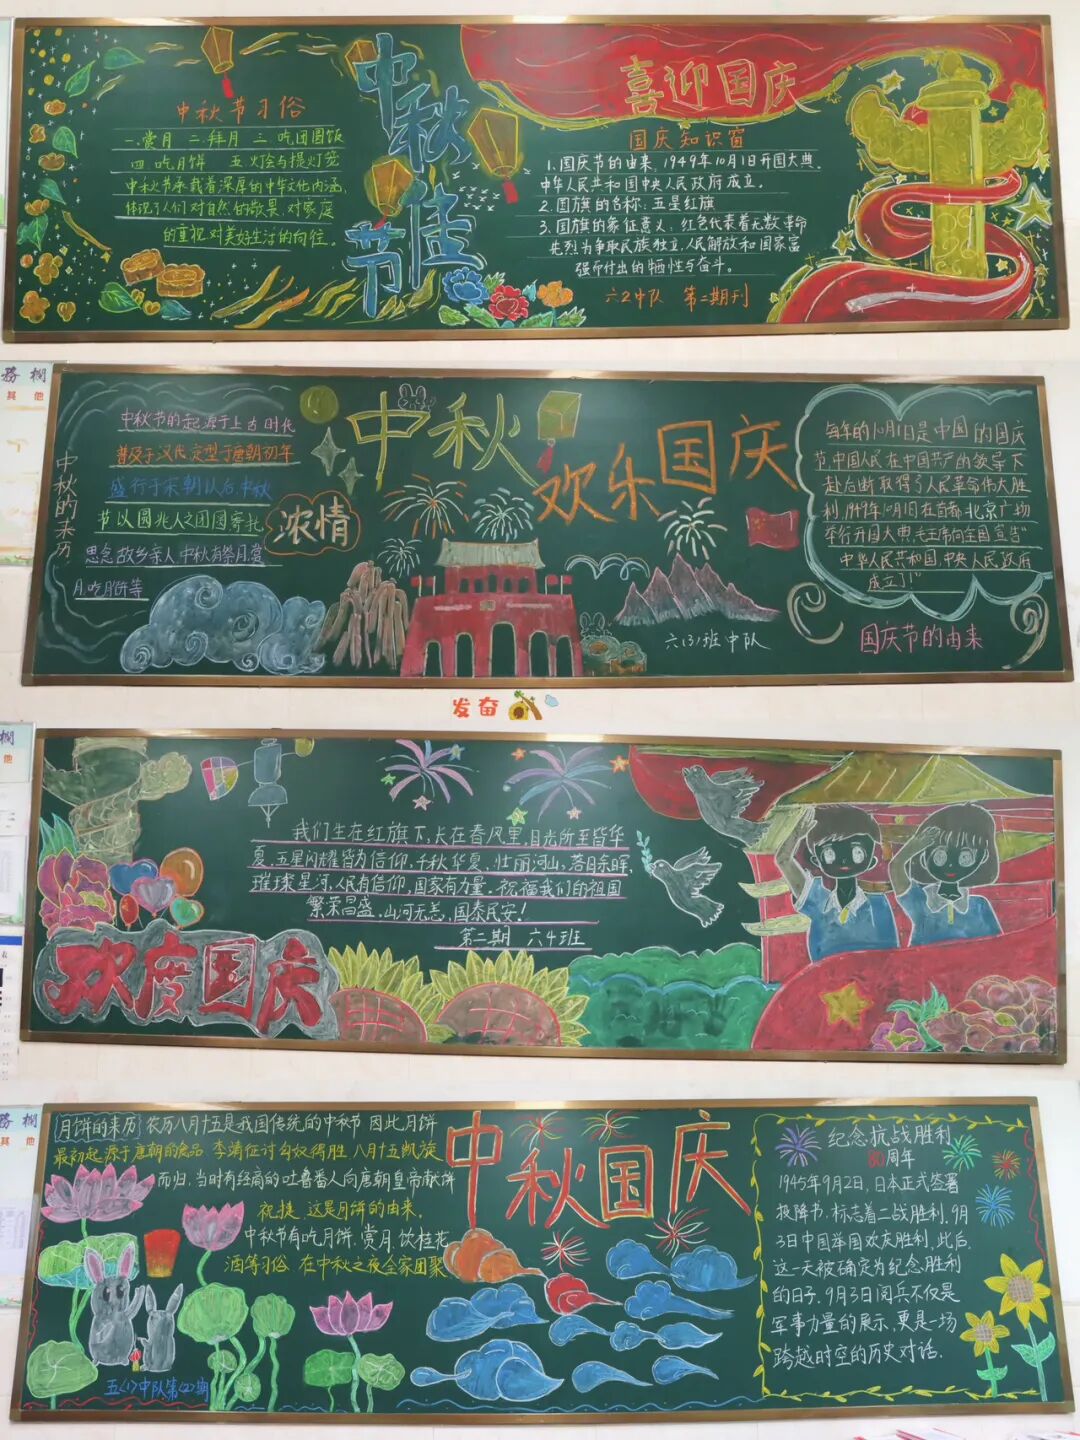 中秋佳节
喜迎国庆
中秋节习俗
一.赏月 二.拜月 三.吃团圆饭
四.吃月饼 五.灯会与提灯笼
中秋节承载着深厚的中华文化内涵,
体现了人们对自然的敬畏.对家庭
的重视.对美好生活的向往.
国庆知识窗
1.国庆节的由来,1949年10月1日开国大典.
中华人民共和国中央人民政府成立。
2.国旗的名称:五星红旗
3.国旗的象征意义:红色代表着无数革命
先烈为争取民族独立.人民解放和国家富
强而付出的牺牲与奋斗。
六2中队 第二期刊
務欄
其他
中秋的来历
中秋节的起源于上古时代
普及于汉代.定型于唐朝初年
盛行于宋朝以后.中秋
节以圆兆人之团圆寄托
思念故乡亲人.中秋有祭月.赏
月.吃月饼等
浓情
中秋
欢乐国庆
每年的10月1日是中国的国庆
节.中国人民在中国共产的领导下
赴后断取得了人民革命伟大胜
利.1949年10月1日在首都北京广场
举行开国大典,毛主席向全国宣告"
中华人民共和国.中央人民政府
成立了!"
六(3)班中队
国庆节的由来
发奋
欄
他
我们生在红旗下,长在春风里,目光所至皆华
夏,五星闪耀皆为信仰,千秋华夏,壮丽河山,落日余晖,
璀璨星河,人民有信仰,国家有力量.祝福我们的祖国
繁荣昌盛.山河无恙,国泰民安!
第二期 六4班
欢度国庆
務欄
其他
月饼的来历 农历八月十五是我国传统的中秋节 因此月饼
最初起源于唐朝的食品 李靖征讨匈奴得胜 八月十五凯旋
而归.当时有经商的吐鲁番人向唐朝皇帝献饼
祝捷.这是月饼的由来。
中秋节有吃月饼.赏月.饮桂花
酒等习俗 在中秋之夜全家团聚
中秋国庆
五<1>中队第<2>期
纪念抗战胜利
80周年
1945年9月2日,日本正式签署
投降书.标志着二战胜利.9月
3日中国举国欢庆胜利,此后.
这一天被确定为纪念胜利
的日子.9月3日阅兵不仅是
军事力量的展示,更是一场
跨越时空的历史对话.